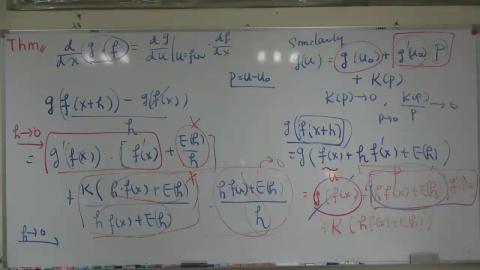 Thm. d/dx g(f) = dg/du |u=f(x) · df/dx
Similarly
g(u) = g(u₀) + g'(u₀) P
+ K(P)
P = u-u₀
K(P) → 0, K(P)/P → 0
P→0
g(f(x+h)) - g(f(x))
h
h→0
= g'(f(x)) · [f'(x) + E(h)/h]
g(f(x+h))
= g(f(x) + h f'(x) + E(h))
+ K(h f'(x) + E(h)) / h f'(x) + E(h) · h f'(x) + E(h) / h
→0
h→0